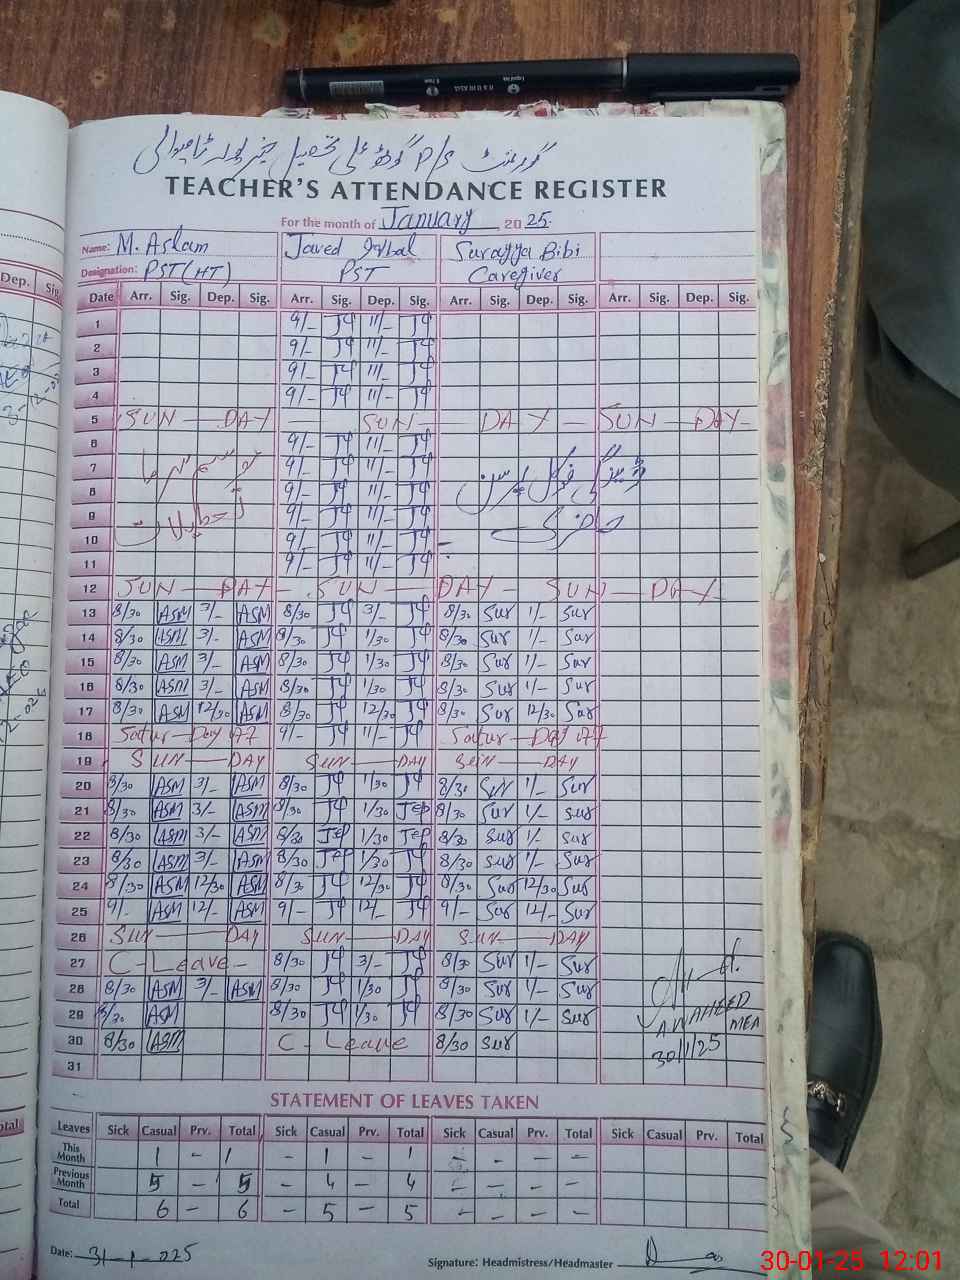 گورنمنٹ P/S گوٹھ علی تحصیل خیرپور ٹامیوالی
TEACHER'S ATTENDANCE REGISTER
For the month of January 2025
Name: M. Aslam Javed Iqbal Surayya Bibi
Designation: PST(HT) PST Caregiver
Date Arr. Sig. Dep. Sig. Arr. Sig. Dep. Sig. Arr. Sig. Dep. Sig. Arr. Sig. Dep. Sig.
1 9/- J4 11/- J4
2 9/- J4 11/- J4
3 9/- J4 11/- J4
4 9/- J4 11/- J4
5 SUN DAY SUN DAY SUN DAY
6 9/- J4 11/- J4
7 9/- J4 11/- J4
8 9/- J4 11/- J4
9 9/- J4 11/- J4
10 9/- J4 11/- J4
11 9/- J4 11/- J4
12 SUN DAY SUN DAY SUN DAY
13 8/30 ASM 3/- ASM 8/30 J4 3/- J4 8/30 Sur 1/- Sur
14 8/30 ASM 3/- ASM 8/30 J4 1/30 J4 8/30 Sur 1/- Sur
15 8/30 ASM 3/- ASM 8/30 J4 1/30 J4 8/30 Sur 1/- Sur
16 8/30 ASM 3/- ASM 8/30 J4 1/30 J4 8/30 Sur 1/- Sur
17 8/30 ASM 12/30 ASM 8/30 J4 12/30 J4 8/30 Sur 12/30 Sur
18 Satur Day 9/- J4 11/- J4 Satur Day
19 SUN DAY SUN DAY SUN DAY
20 8/30 ASM 3/- ASM 8/30 J4 1/30 J4 8/30 Sur 1/- Sur
21 8/30 ASM 3/- ASM 8/30 J4 1/30 Jep 8/30 Sur 1/- Sur
22 8/30 ASM 3/- ASM 8/30 Jep 1/30 Jep 8/30 Sur 1/- Sur
23 8/30 ASM 3/- ASM 8/30 Jep 1/30 J4 8/30 Sur 1/- Sur
24 8/30 ASM 12/30 ASM 8/30 J4 12/30 J4 8/30 Sur 12/30 Sur
25 9/- ASM 12/- ASM 9/- J4 12/- J4 9/- Sur 12/- Sur
26 SUN DAY SUN DAY SUN DAY
27 C-Leave- 8/30 J4 3/- J4 8/30 Sur 1/- Sur
28 8/30 ASM 3/- ASM 8/30 J4 1/30 J4 8/30 Sur 1/- Sur
29 8/30 ASM 8/30 J4 1/30 J4 8/30 Sur 1/- Sur
30 8/30 ASM C - Leave 8/30 Sur
31
A WAHEED
MEA
30/1/25
STATEMENT OF LEAVES TAKEN
Leaves Sick Casual Prv. Total Sick Casual Prv. Total Sick Casual Prv. Total Sick Casual Prv. Total
This Month 1 - 1 - 1 - 1 - - - -
Previous Month 5 - 5 - 4 - 4 - - - -
Total 6 - 6 - 5 - 5 - - - -
Date: 31-1-025 Signature: Headmistress/Headmaster
30-01-25 12:01